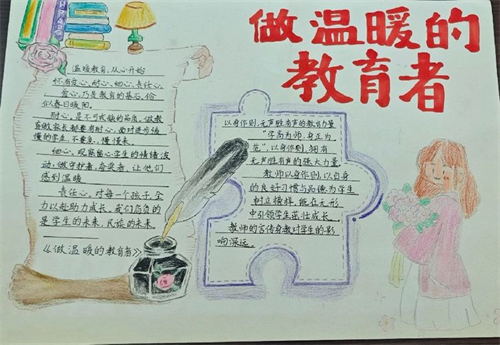 做温暖的
教育者
温暖教育,从心开始
怀有爱心、耐心、细心、责任心。
爱心,乃是教育的基石,恰
似春日暖阳。
耐心,是不可或缺的品质,做教
育做家长都要有耐心,面对进步缓
慢的学生,不要急,慢慢来。
细心,观察留心学生的情绪波
动,做守护者,合灵者,让他们
感到温暖
责任心,对每一个孩子,全
力以赴助力成长,我们肩负的
是学生的未来,民族的未来。
《做温暖的教育者》
以身作则,无声胜有声的教育力量
"学为师,身正为
范",以身作则,拥有
无声胜有声的强大力量,
教师以身作则,以自身
的良好习惯与品德为学生
树立榜样,能在无形
中引领学生茁壮成长
教师的言传身教对学生的影
响深远